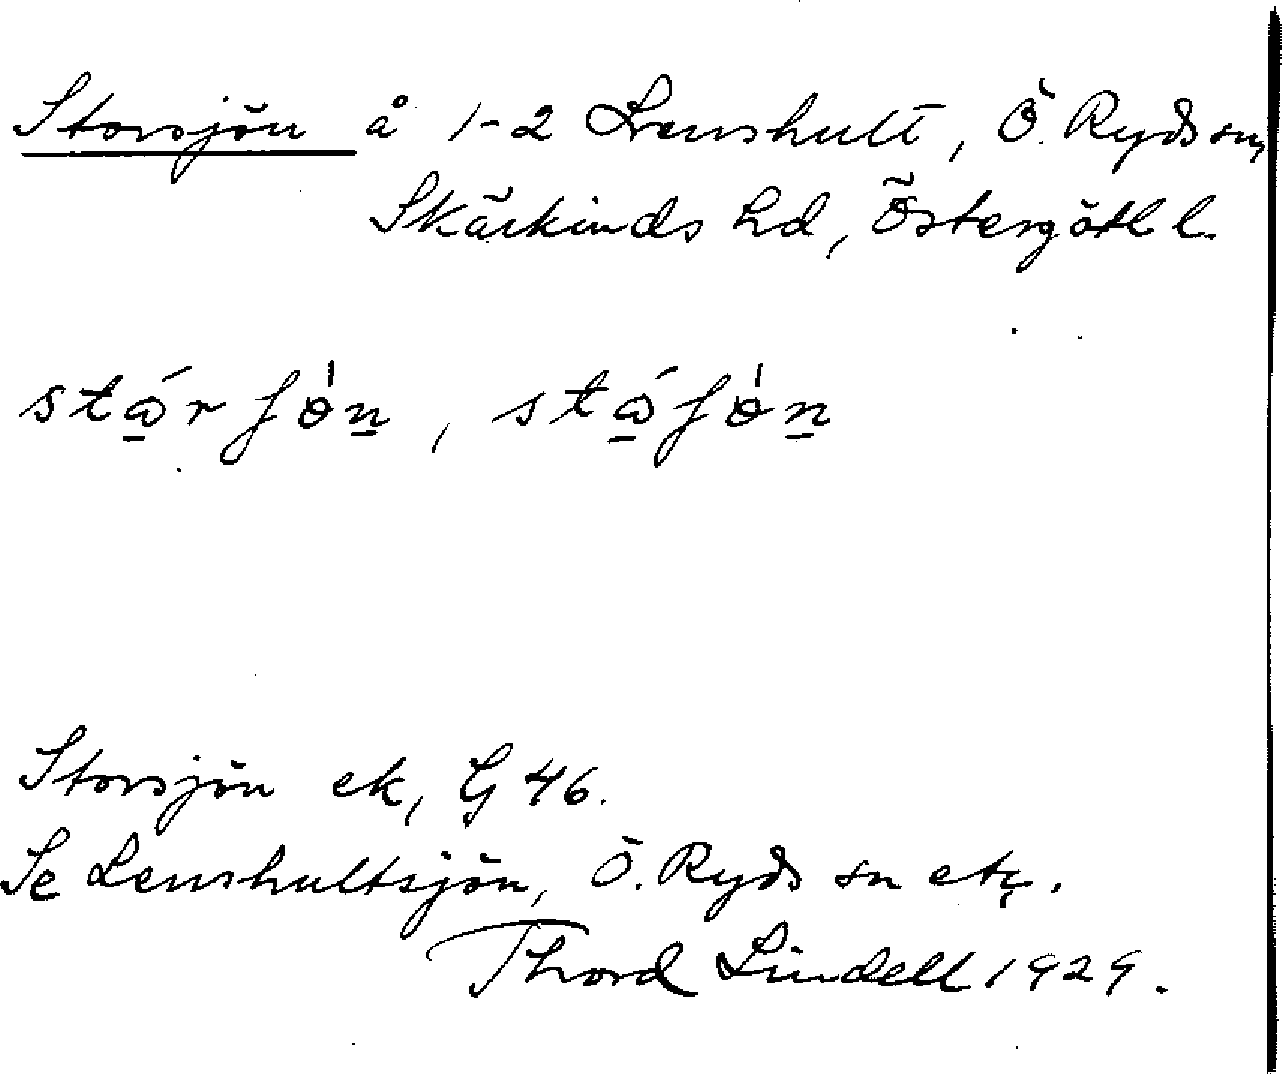 Storsjön å 1-2 Lenshult, Ö. Ryds sn,
Skärkinds hd, Östergötl l.
stώ̱rʃɵ̀n̠, stώ̱ʃɵ̀n̠
Storsjön ek, G 46.
Se Lenshultsjön, Ö. Ryds sn etc.
Thord Lindell 1929.